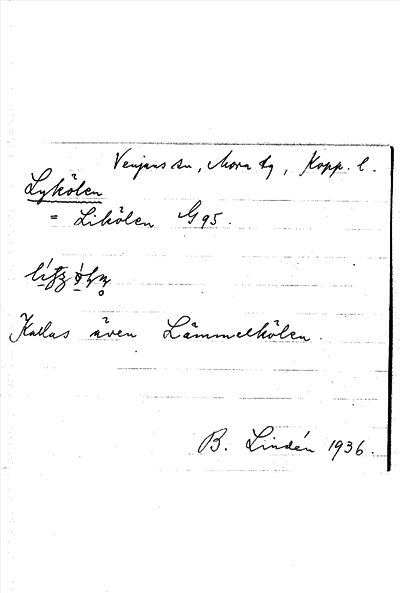 Venjans sn, Mora tg, Kopp. l.
Lykölen
= Likölen G95.
Kallas även Lämmelkölen.
B. Lindén 1936.